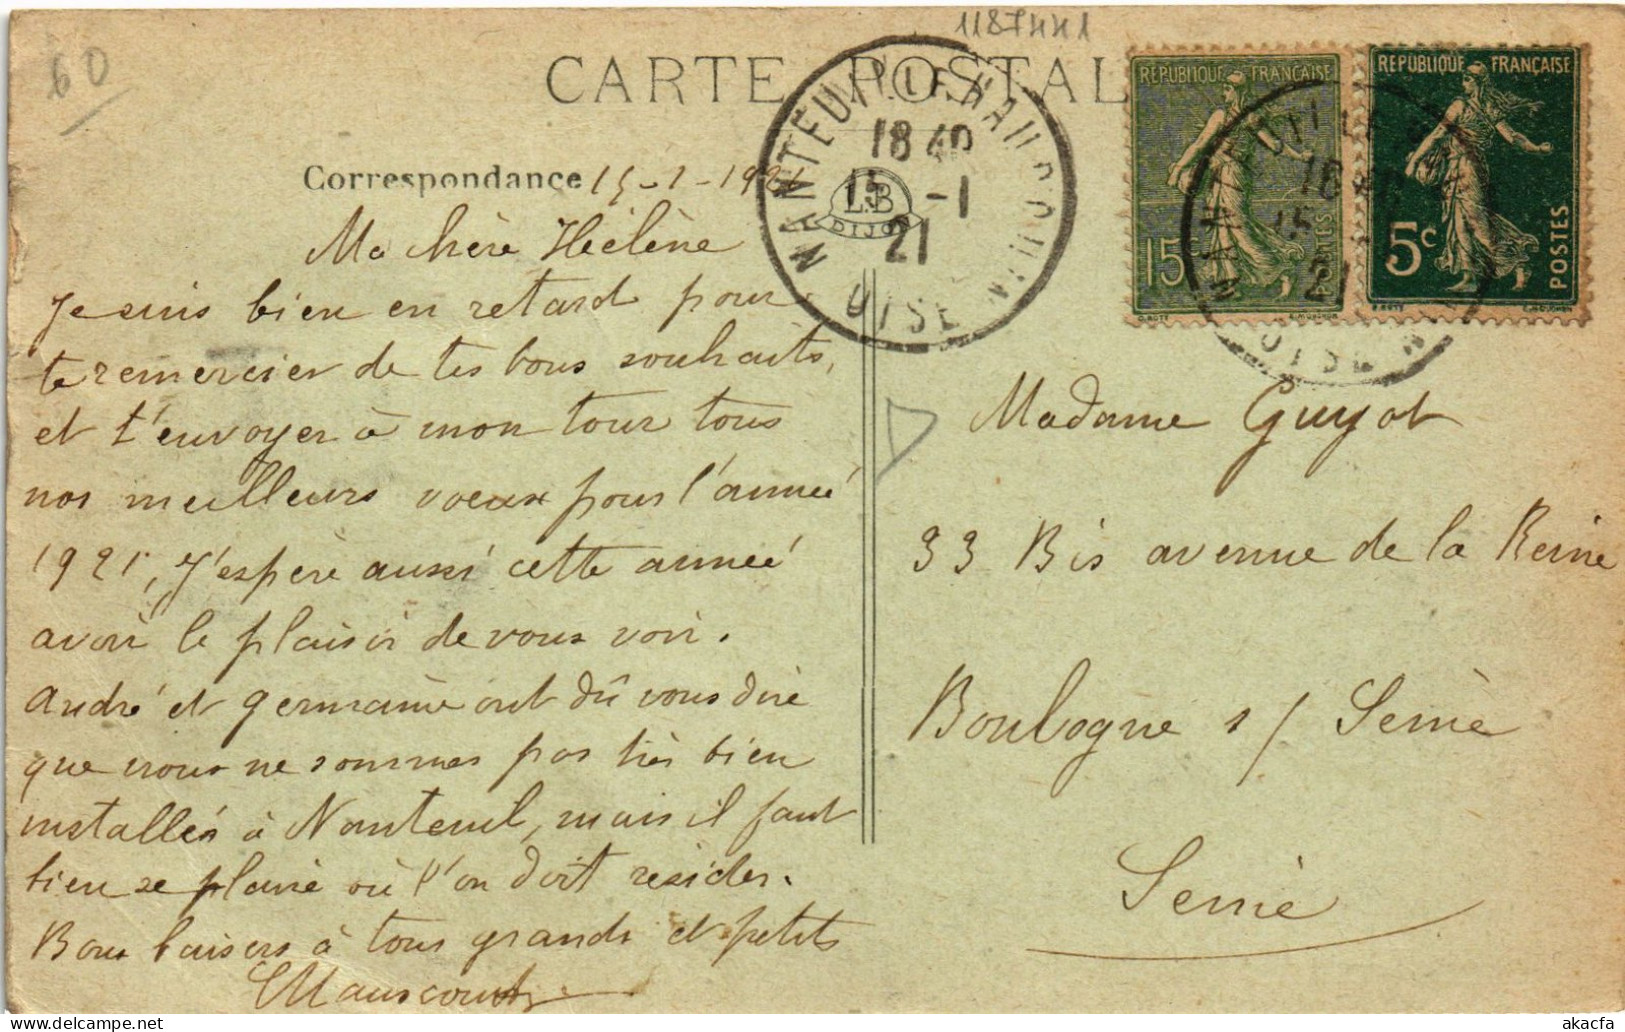 1187441
60
CARTE POSTALE
Correspondance 15-1-1921
Ma chère Hélène
Je suis bien en retard pour
te remercier de tes bons souhaits,
et t'envoyer à mon tour tous
nos meilleurs voeux pour l'année
1921, J'espère aussi cette année
avoir le plaisir de vous voir.
André et Germaine ont dû vous dire
que nous ne sommes pas très bien
installés à Nanteuil, mais il faut
bien se plaire où l'on doit résider.
Bons baisers à tous grands et petits
NANTEUIL-LE-HAUDOUIN
18 40
15 -1
21
OISE
L.B
DIJON
REPUBLIQUE FRANÇAISE
15c
POSTES
REPUBLIQUE FRANÇAISE
5c
POSTES
NANTEUIL-LE
18
15
21
OISE
Madame Guyot
33 Bis avenue de la Reine
Boulogne s/ Seine
Seine
akacfa
delcampe.net